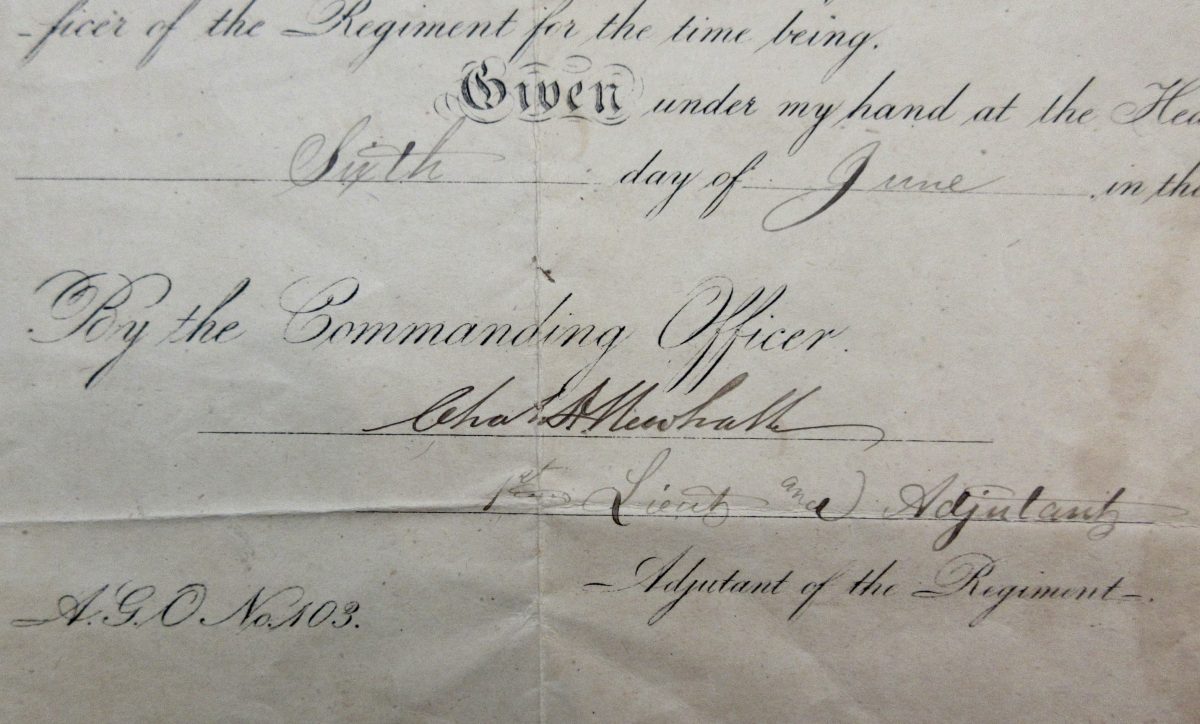 -ficer of the Regiment for the time being.
Given under my hand at the Hea
Sixth day of June in the
By the Commanding Officer.
Chas. A. Newhall
1st Lieut and Adjutant
Adjutant of the Regiment.
A.G.O. No. 103.